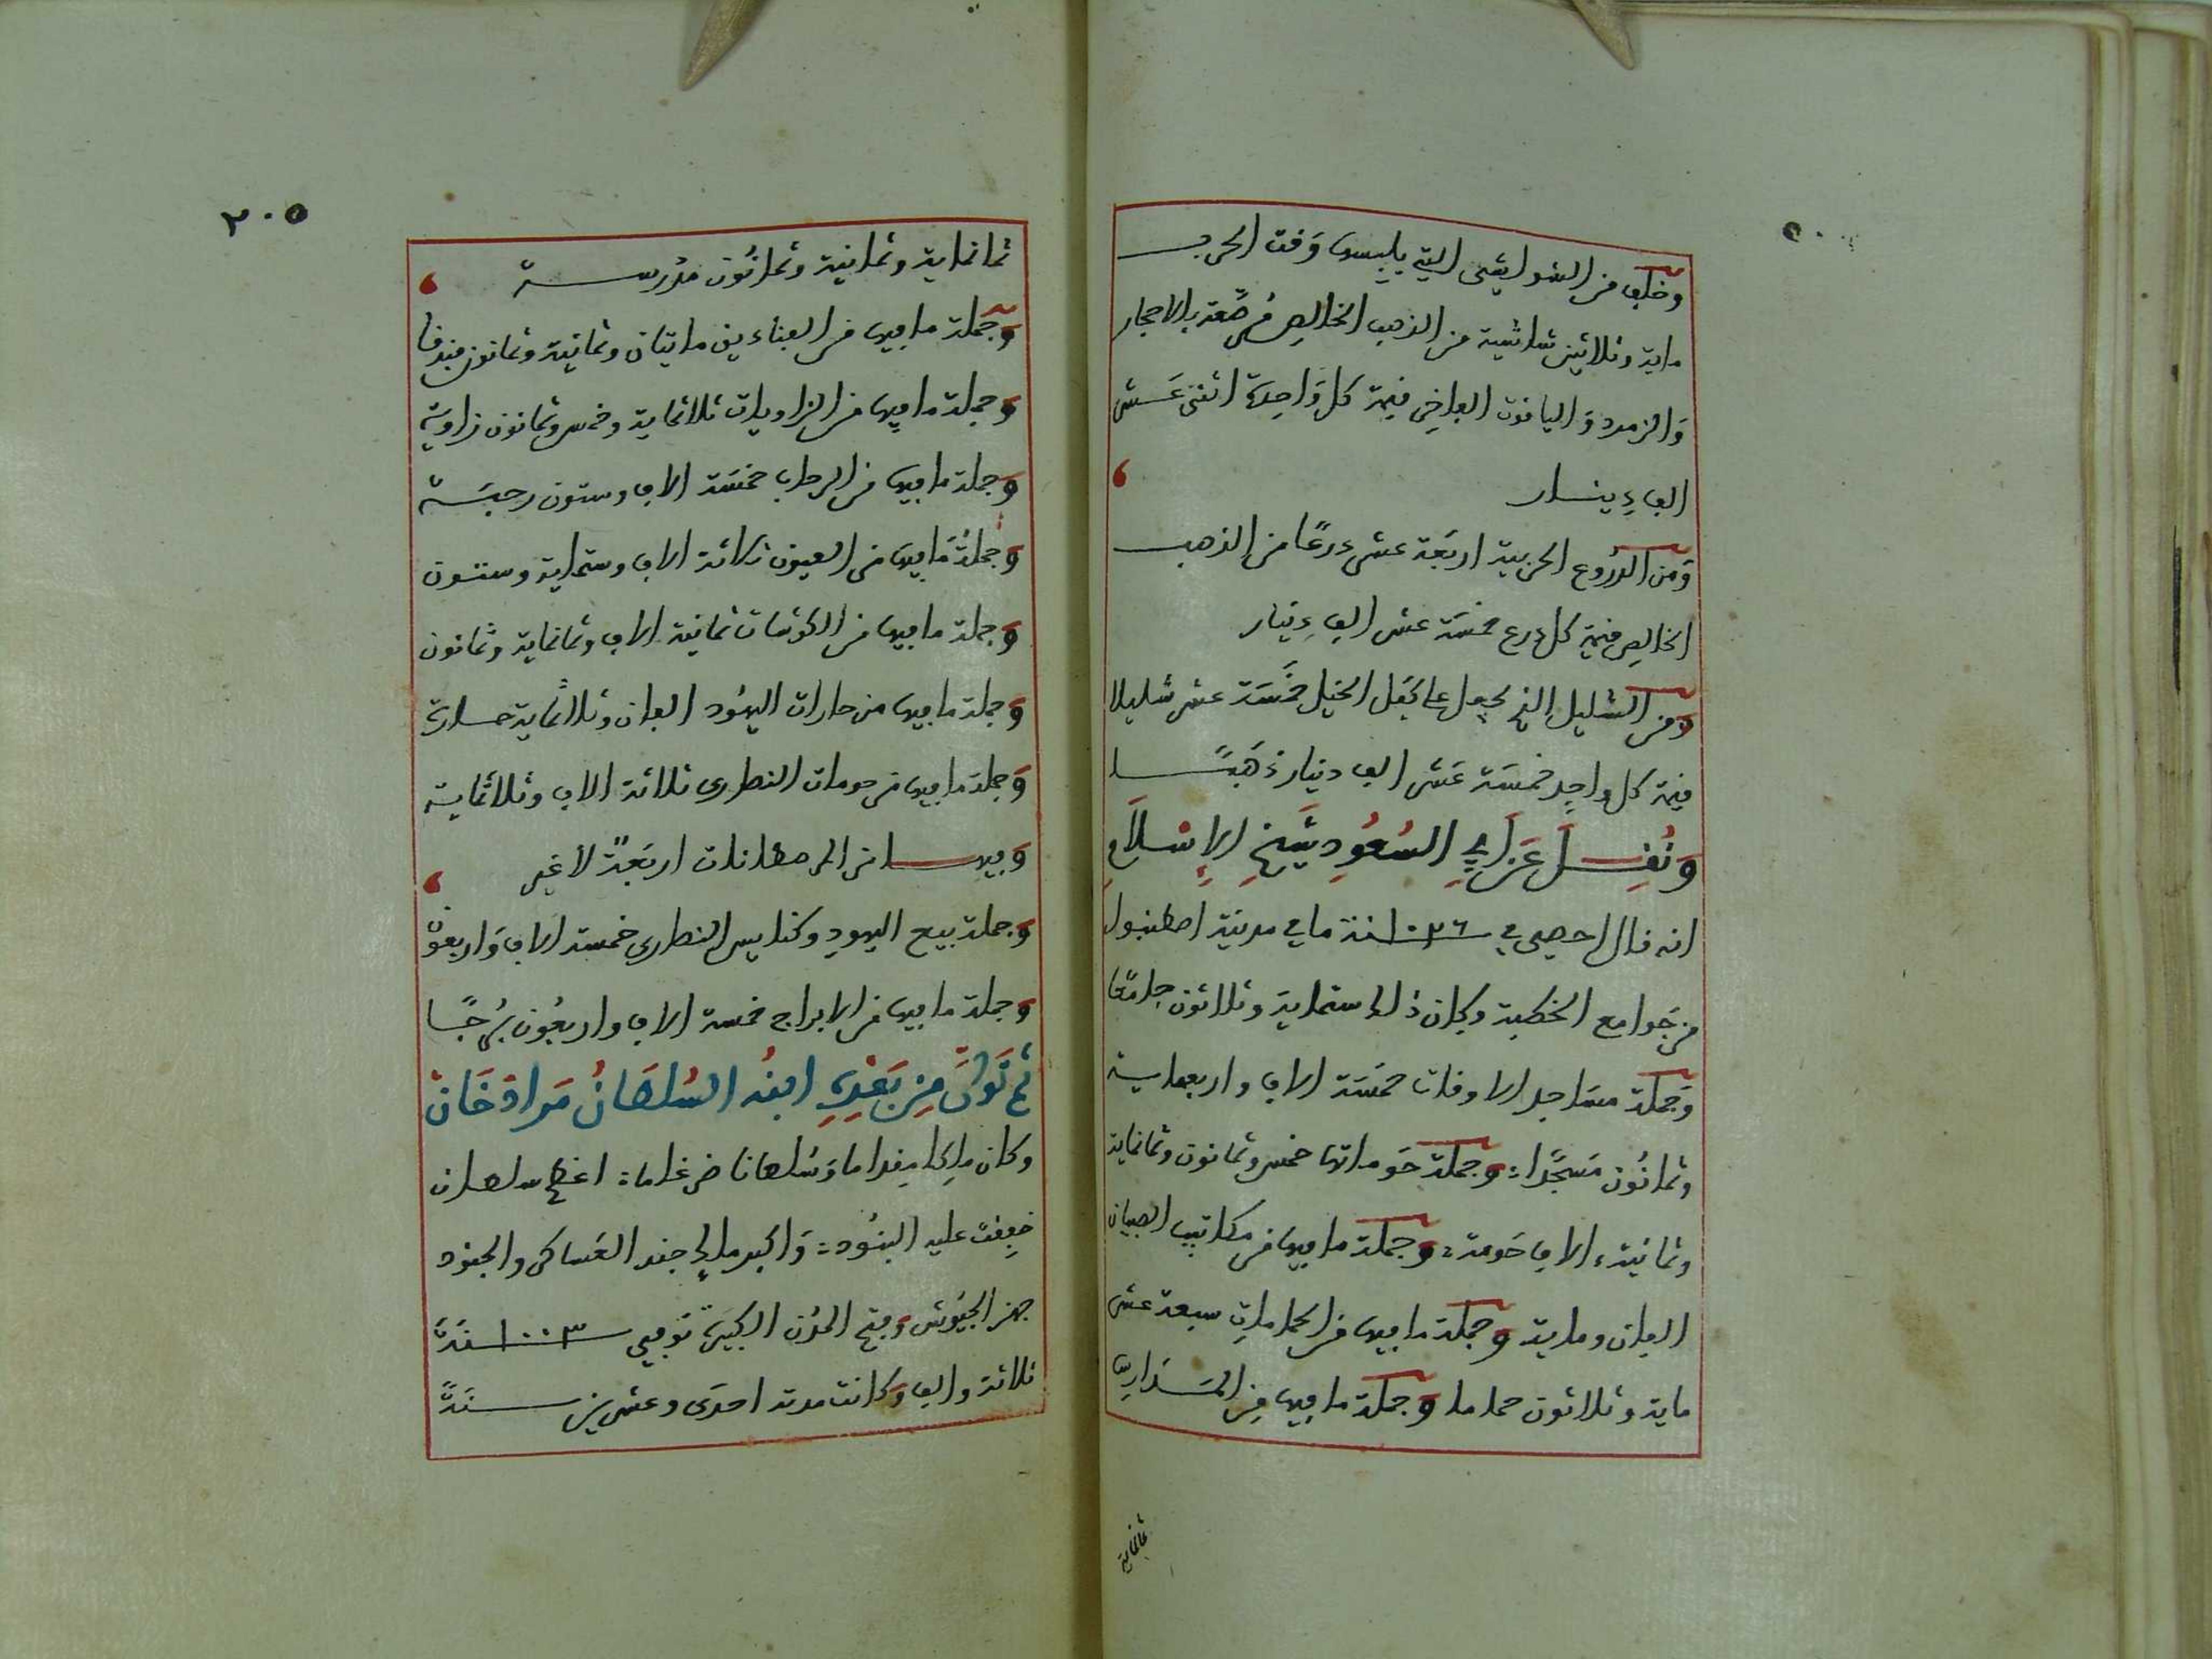 وخلف من الشواشي التي يلبسها وقت الحرب
ماية وثلاثين شاشية من الذهب الخالص مُرصَّعة بالاحجار
وَالزمرد وَاليافوت الفاخر قيمة كل وَاحِدة اثني عَشر
الف دِينار
وَمن الدرُوع الحربية اربَعة عشر درعًا من الذهب
الخالِص قيمة كل درع خمسَة عشر الف دِينار
وَمن الشليل الذي يجعل على كفل الخيل خمسَة عشر شليلا
قيمة كل واحِد خمسَة عَشر الف دينار ذهَبًا
وَنُقِلَ عَن اَبِي السُعُودِ شَيخِ الإِسْلَامِ
انه قال احصي في ١٠٢٦ سنة ما في مدينة اصطنبول
من جَوامع الخطبة وكان ذلك ستماية وثلاثون جامعًا
وَجملة مسَاجد الاوقات خمسَة الاف واربعماية
وثمانُون مَسجدًا: وجملة حَوماتها خمس وثمانون وثمانماية
وثمانية الاف حَومة: وجملة ما فيها من مكاتيب الصبيان
الفان وماية وجملة ما فيها من الحمامات سبعة عشر
ماية وثلاثون حماما وجملة ما فيها مِن المَدَارِس
ثمانماية
٢٠٥
ثمانماية وثمانية وثمانُون مدرسة
وَجملة ما فيها من الفنادين مايتان وثمانية وثمانون فندقا
وجملة ما فيها من الزاويات ثلاثماية وخمس وثمانون زاوية
وجملة ما فيها من الرحاب خمسَة الاف وستون رحبَة
وجملةُ مَا فيها من العيون ثلاثة الاف وستماية وستون
وجملة ما فيها من الكوشات ثمانية الاف وثمانماية وثمانون
وَجملة ما فيها من حارات اليهُود الفان وثلاثماية حارة
وَجملة ما فيها من حومات النصارى ثلاثة الاف وثلاثماية
وَفيها من المرسطانات اربَعةٌ لا غير
وجملة بيع اليهود وكنايس النصارى خمسة الاف وَاربعون
وجملة ما فيها من الابراج خمسة الاف واربعُون بُرجًا
ثم تَولَّى مِن بَعْدِهِ ابنُه السُلطَانُ مَرادْ خَان
وكان ملِكا مقداما وَسُلطانا ضرغاما: اعظم سلطان
خفِقت عليه البنُود: وَاكبر ملك جند العَساكر والجنود
جهز الجيُوش وفتح المدُن الكبيرَة تَوفي سنة ١٠٠٣
ثلاثة والف وَكانت مدته احدَى وعشرين سنَةً